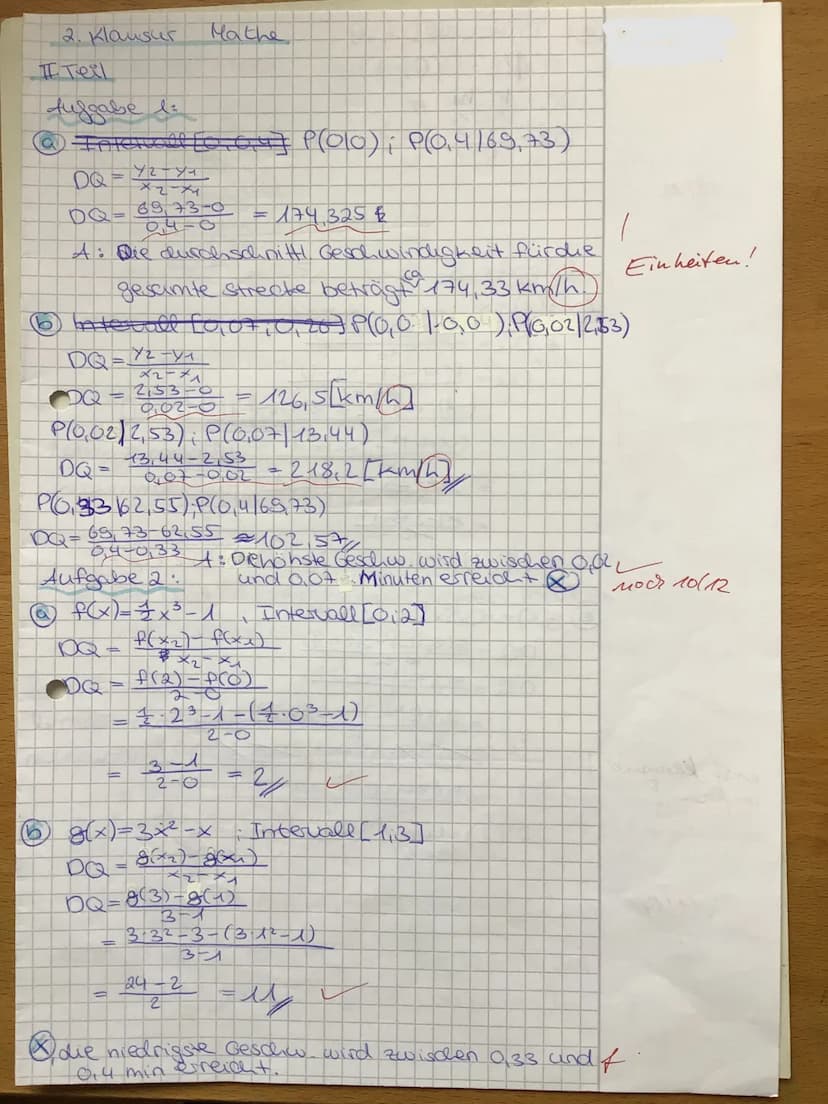 2. Klausur Mathe
II Teil
Aufgabe 1:
a) Intervall [0; 0,4] P(0|0); P(0,4|69,73)
DQ = y2-y1 / x2-x1
DQ = 69,73-0 / 0,4-0 = 174,325
A: Die durchschnittl. Geschwindigkeit für die
Einheiten!
gesamte Strecke beträgt ca 174,33 km/h.
b) Intervall [0,07; 0,26] P(0,0|0,0); P(0,02|2,53)
DQ = y2-y1 / x2-x1
DQ = 2,53-0 / 0,02-0 = 126,5 [km/h]
P(0,02|2,53); P(0,07|13,44)
DQ = 13,44-2,53 / 0,07-0,02 = 218,2 [km/h]
P(0,33|62,55); P(0,4|69,73)
DQ = 69,73-62,55 / 0,4-0,33 ≈ 102,57
A: Die höchste Geschw. wird zwischen 0,02
und 0,07 Minuten erreicht. ⊗
noch 10/12
Aufgabe 2:
a) f(x) = 1/2 x³ - 1 , Intervall [0;2]
DQ = f(x2) - f(x1) / x2-x1
DQ = f(2) - f(0) / 2-0
= 1/2 · 2³ - 1 - (1/2 · 0³ - 1) / 2-0
= 3-1 / 2-0 = 2 ✓
b) g(x) = 3x² - x ; Intervall [1,3]
DQ = g(x2) - g(x1) / x2-x1
DQ = g(3) - g(1) / 3-1
= 3·3² - 3 - (3·1² - 1) / 3-1
= 24-2 / 2 = 11 ✓
⊗, die niedrigste Geschw. wird zwischen 0,33 und f
0,4 min erreicht.